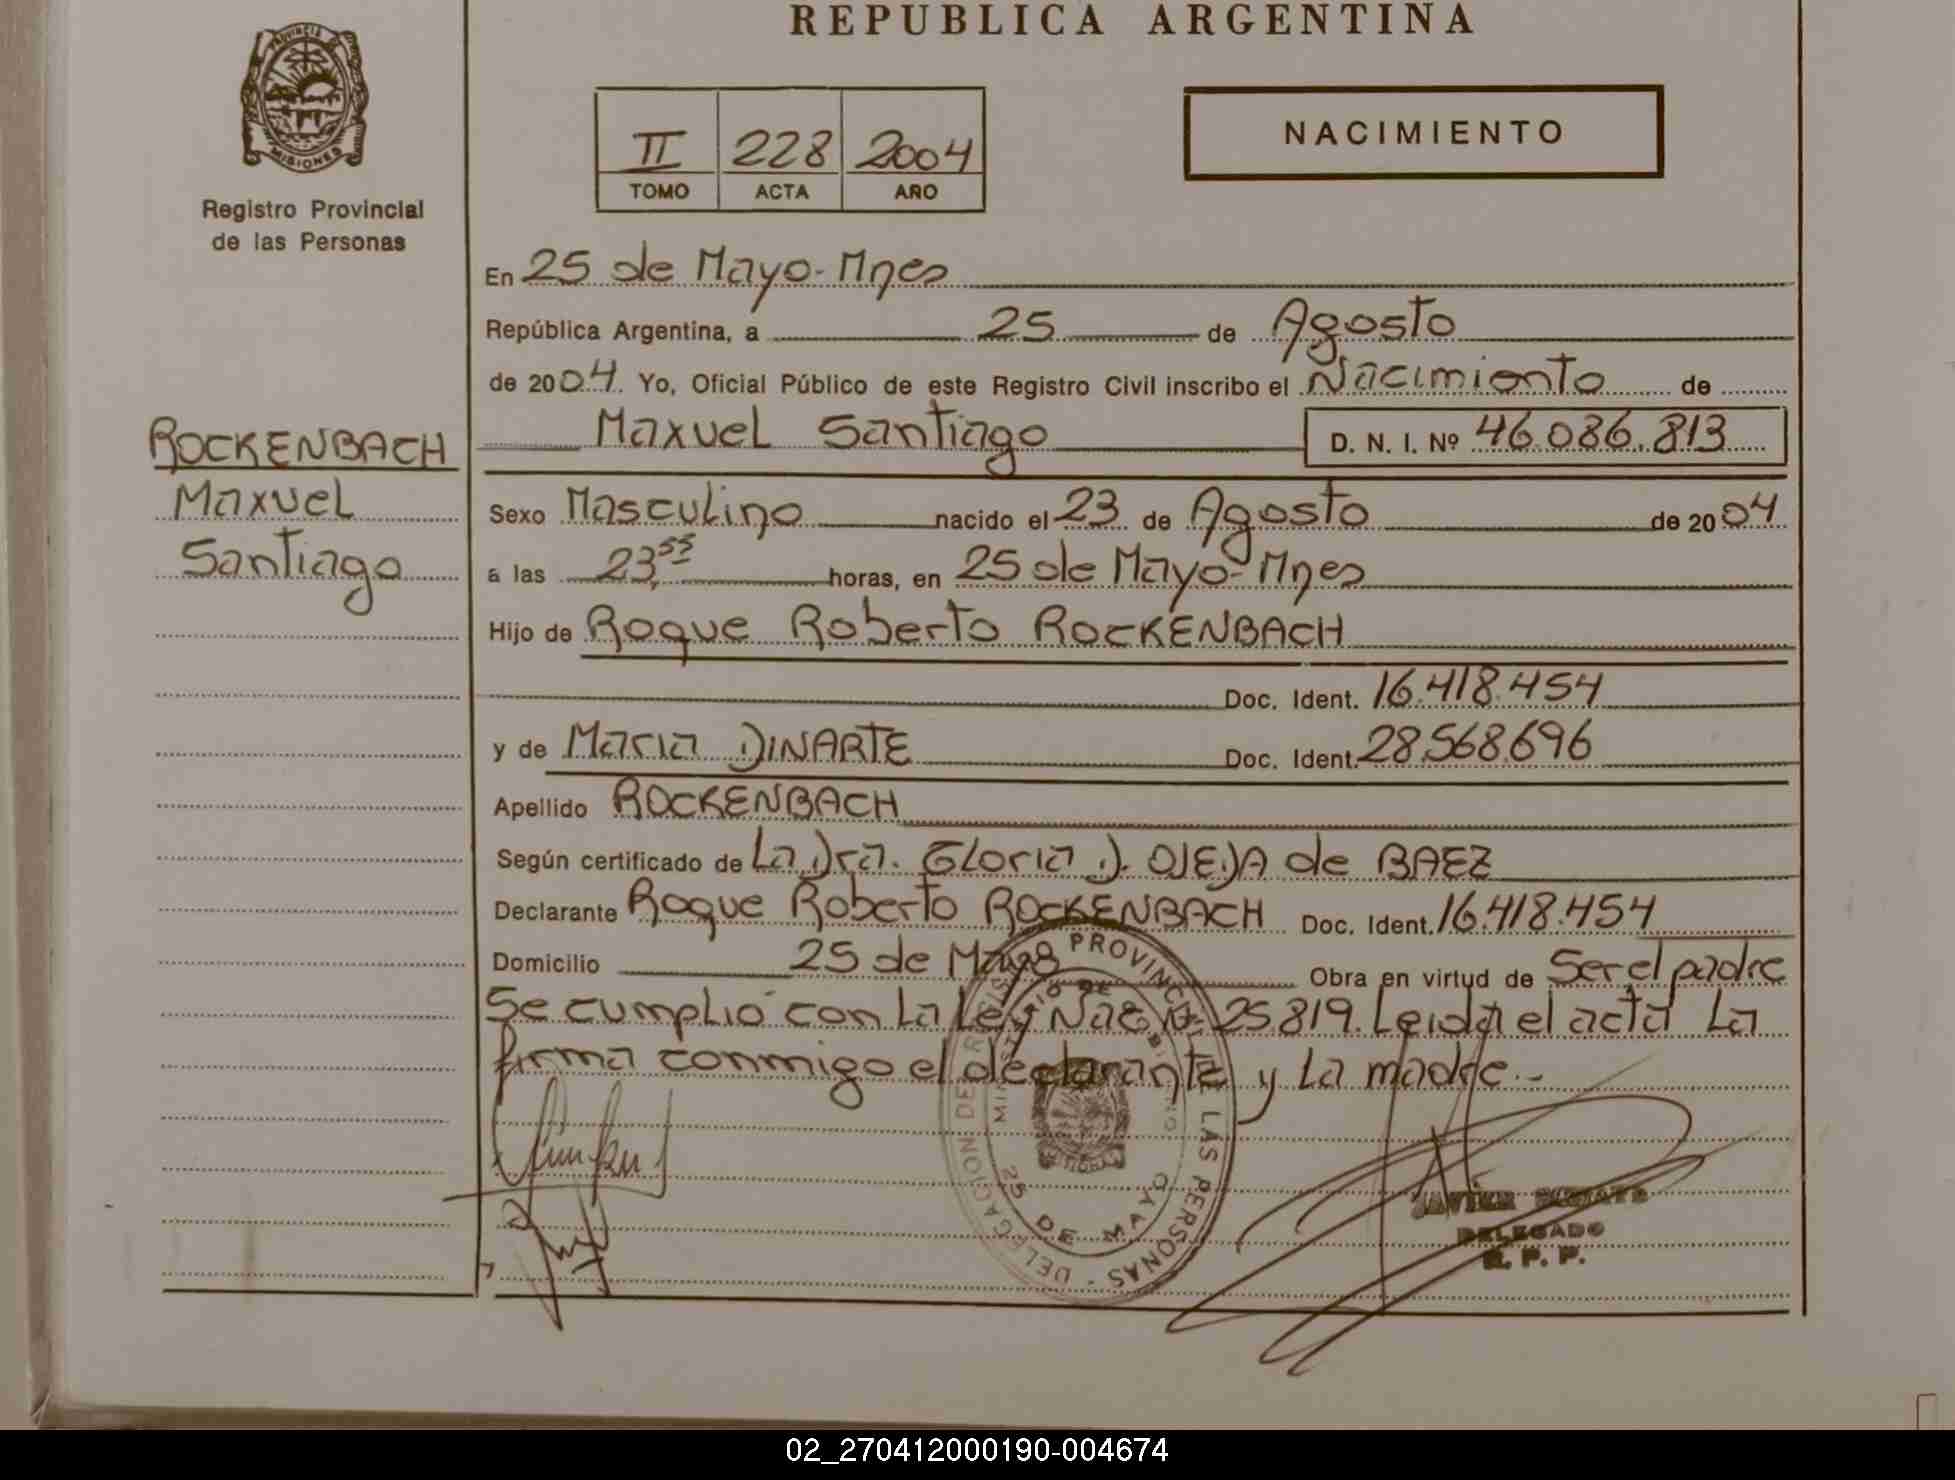 REPUBLICA ARGENTINA
PROVINCIA DE
MISIONES
Registro Provincial
de las Personas
II 228 2004
TOMO ACTA AÑO
NACIMIENTO
En 25 de Mayo-Mnes
República Argentina, a 25 de Agosto
de 2004 Yo, Oficial Público de este Registro Civil inscribo el Nacimiento de
Maxuel Santiago D. N. I. Nº 46.086.813
ROCKENBACH
Maxuel
Santiago
Sexo Masculino nacido el 23 de Agosto de 2004
a las 23,55 horas, en 25 de Mayo-Mnes
Hijo de Roque Roberto ROCKENBACH
Doc. Ident. 16.418.454
y de Maria DINARTE Doc. Ident. 28.568.696
Apellido ROCKENBACH
Según certificado de La Dra. Gloria D. OJEDA de BAEZ
Declarante Roque Roberto ROCKENBACH Doc. Ident. 16.418.454
Domicilio 25 de Mayo Obra en virtud de Ser el padre
Se cumplió con la Ley Nac Nº 25819. Leida el acta La
firma conmigo el declarante y La madre.-
DELEGACION DE REGISTRO PROVINCIAL DE LAS PERSONAS -
MINISTERIO DE GOBIERNO
25 DE MAYO
JAVIER
DELEGADO
R. P. P.
02_270412000190-004674